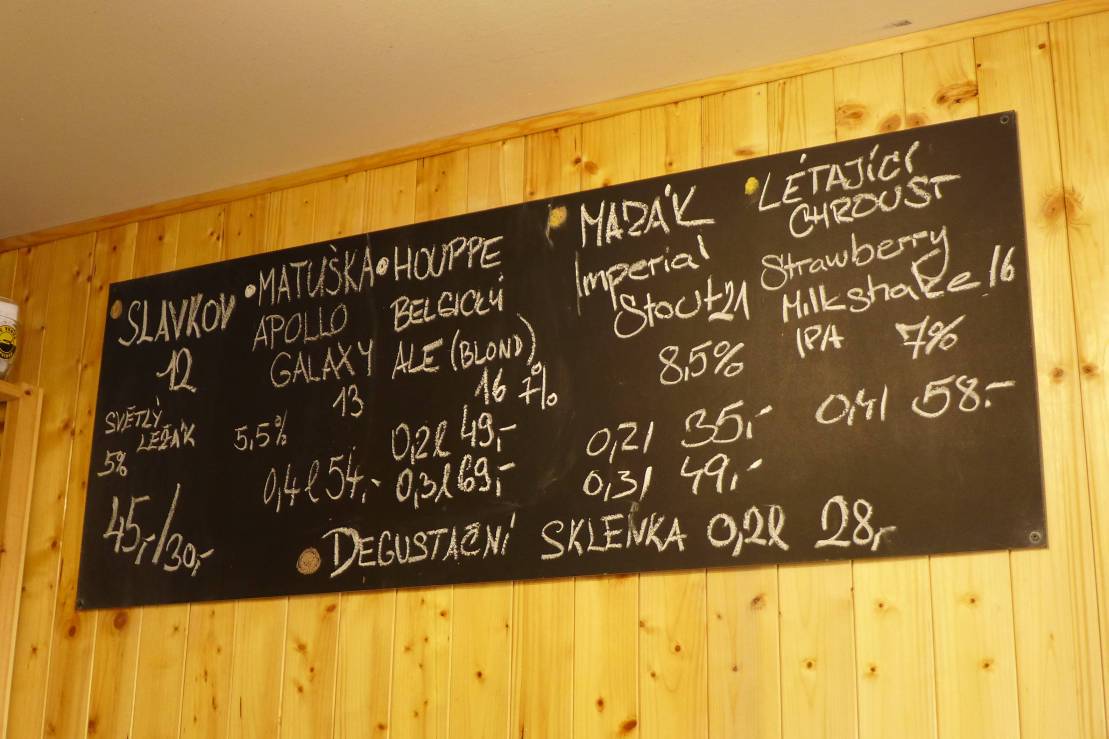 SLAVKOV
12
SVĚTLÝ
LEŽÁK
5%
45,-/30,-
MATUŠKA
APOLLO
GALAXY
13
5,5%
0,4l 54,-
HOUPPE
BELGICKÝ
ALE (BLOND)
16 7%
0,2l 49,-
0,3l 69,-
MAZÁK
Imperial
Stout 21
8,5%
0,2l 35,-
0,3l 49,-
LÉTAJÍCÍ
CHROUST
Strawberry
Milkshake 16
IPA 7%
0,4l 58.-
DEGUSTAČNÍ SKLENKA 0,2l 28,-